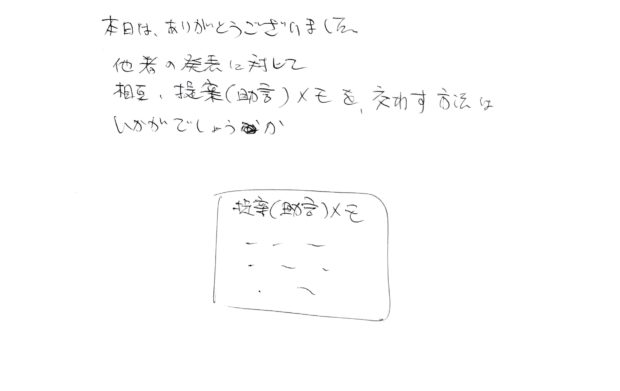 本日は、ありがとうございました。
他者の発表に対して
相互、提案(助言)メモを、交わす方法は
いかがでしょうか
提案(助言)メモ